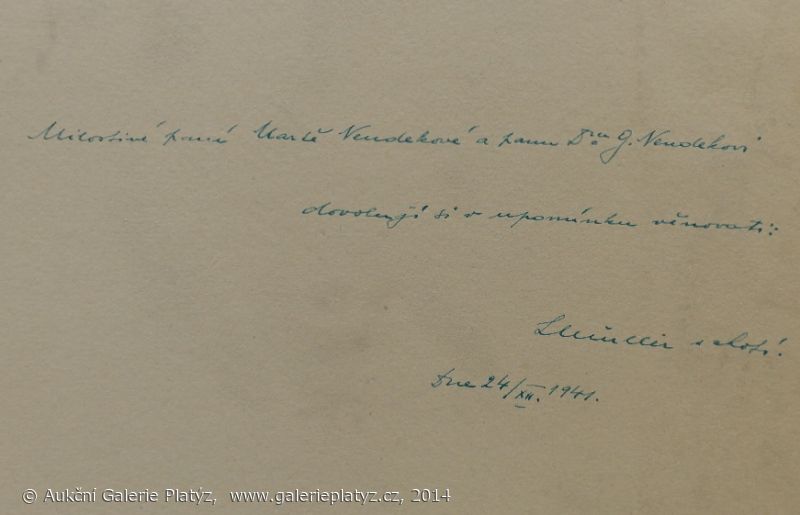 Milostivé paní Martě Vendekové a panu Dru G. Vendekovi
dovolují si v upomínku věnovati:
Müller s chotí.
Dne 24/XII. 1941.
© Aukční Galerie Platýz, www.galerieplatyz.cz, 2014